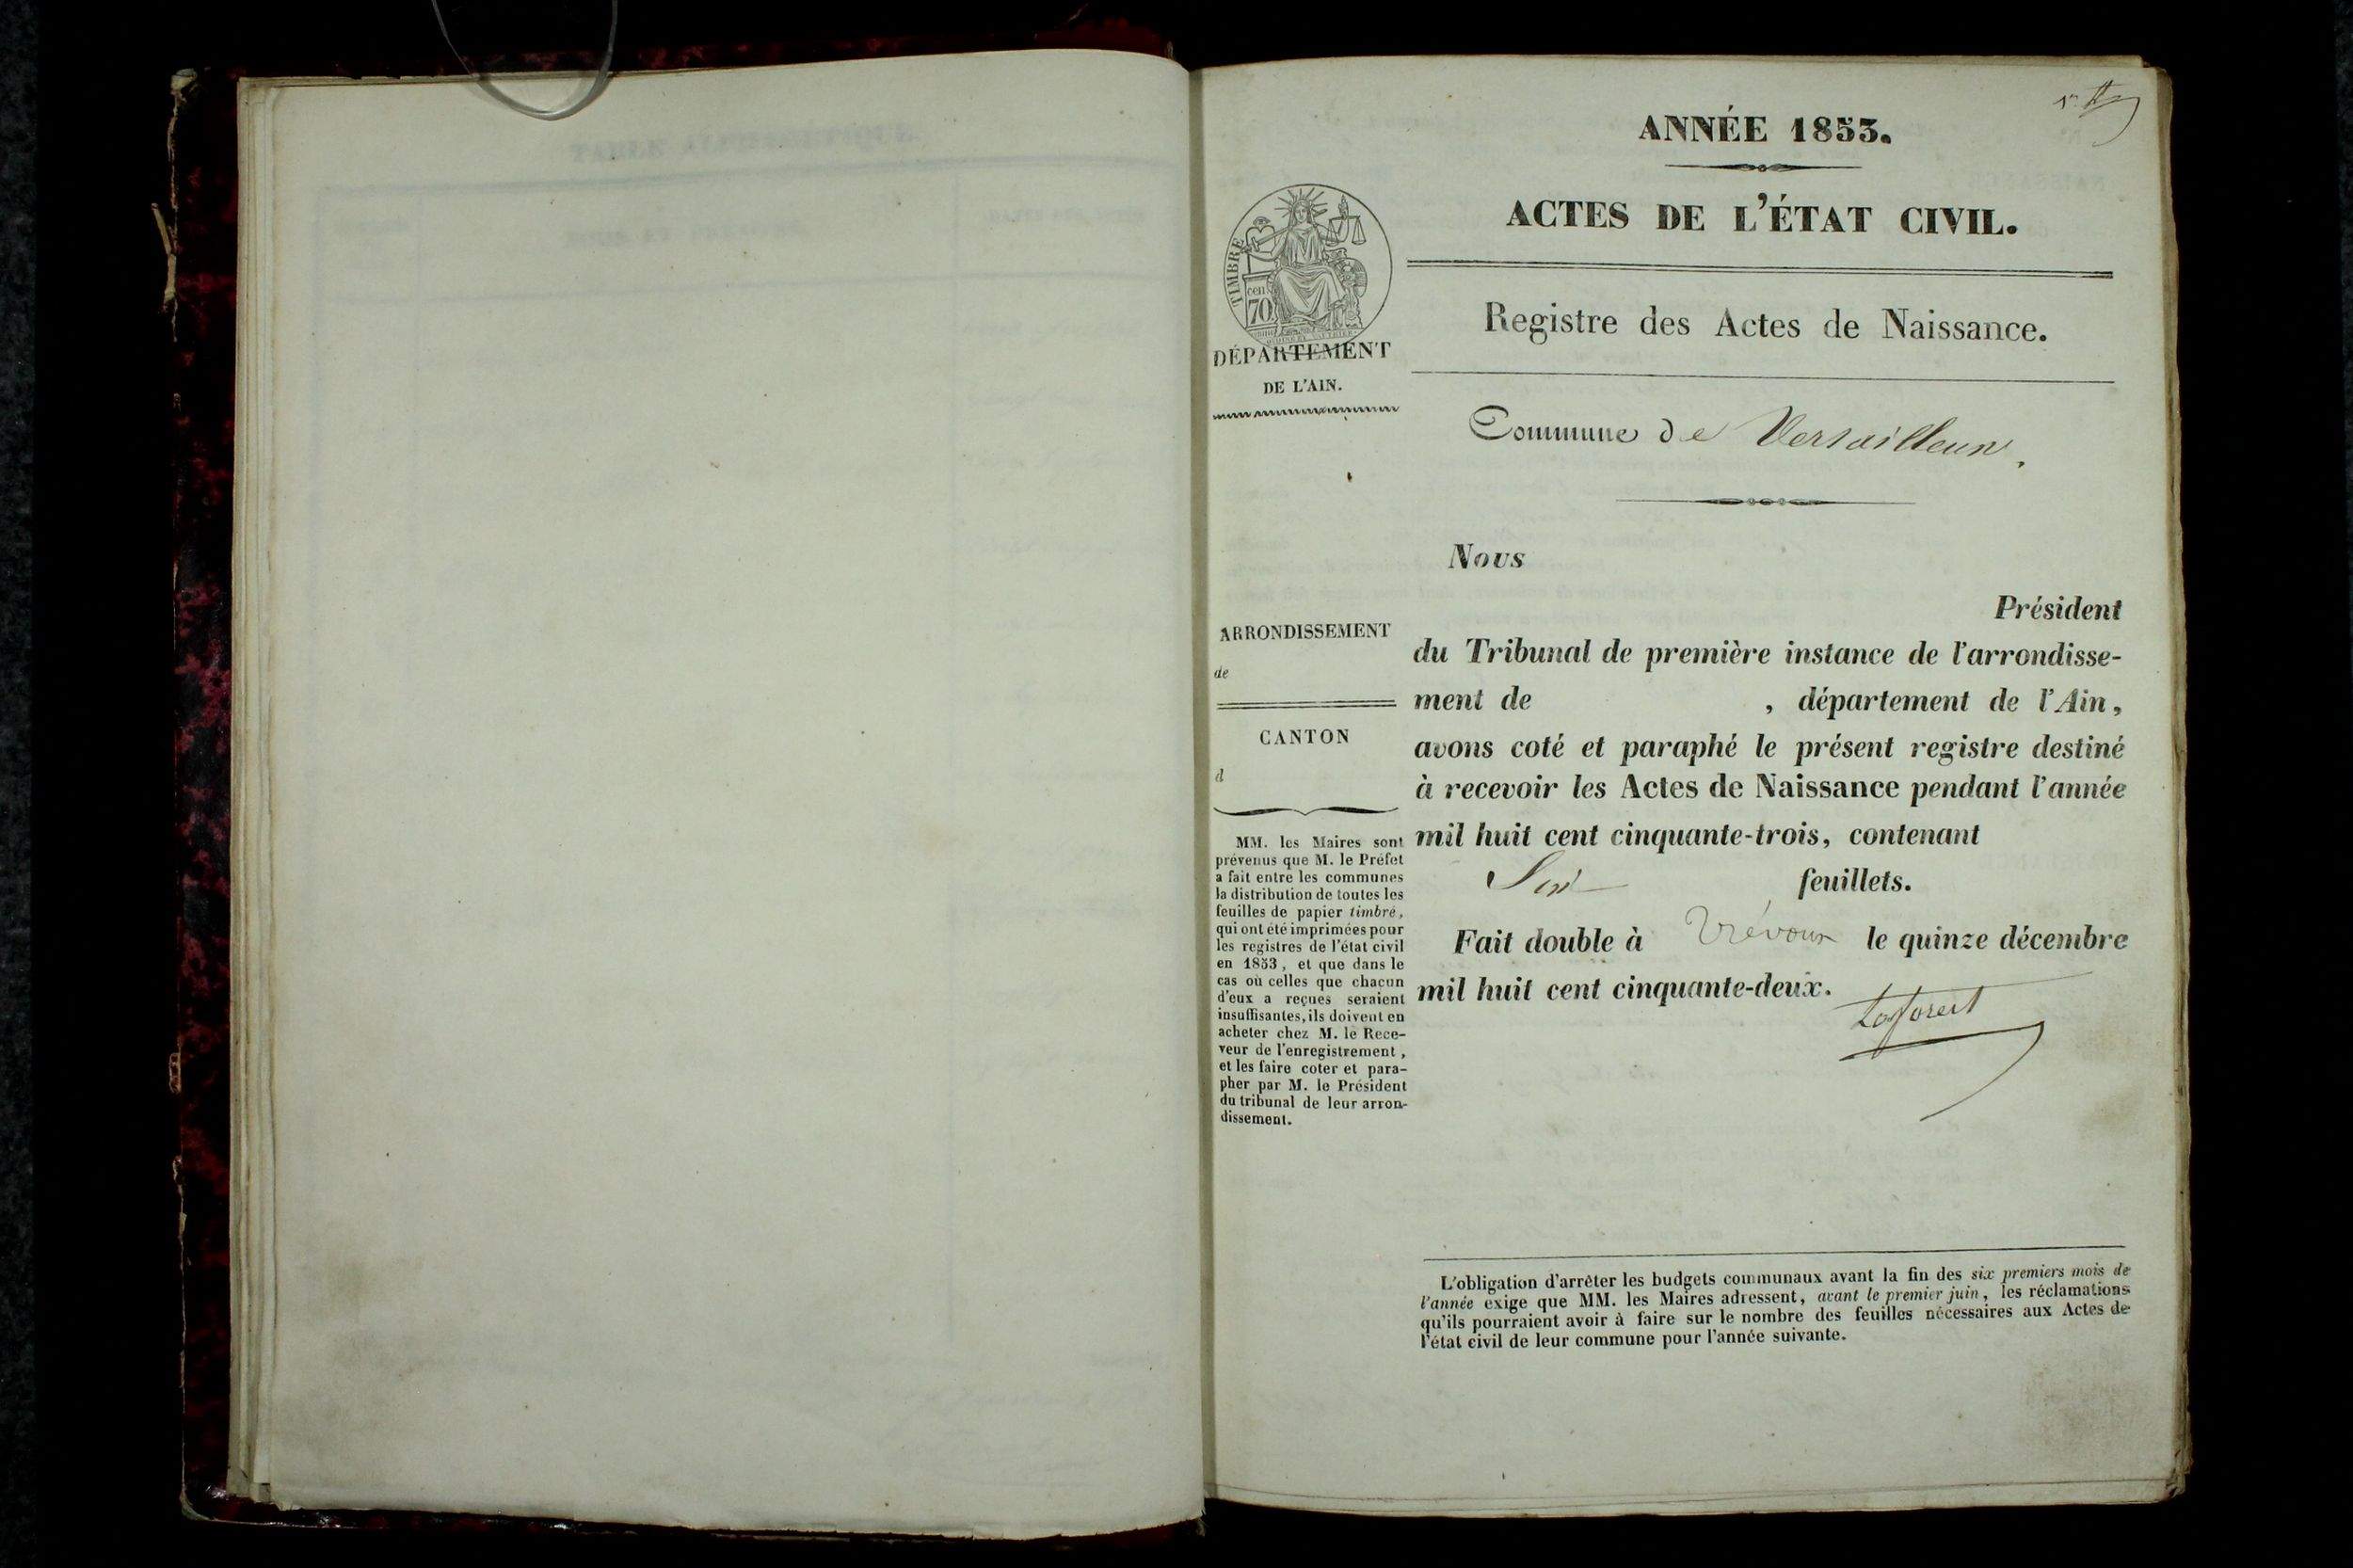 ANNÉE 1853.
ACTES DE L'ÉTAT CIVIL.
TIMBRE
cen
70
DÉPARTEMENT
DE L'AIN.
Registre des Actes de Naissance.
Commune de Versailleux.
Nous
Président
du Tribunal de première instance de l'arrondisse-
ment de , département de l'Ain,
avons coté et paraphé le présent registre destiné
à recevoir les Actes de Naissance pendant l'année
mil huit cent cinquante-trois, contenant
Six feuillets.
Fait double à Trévoux le quinze décembre
mil huit cent cinquante-deux.
Laforest
ARRONDISSEMENT
de
CANTON
d
MM. les Maires sont
prévenus que M. le Préfet
a fait entre les communes
la distribution de toutes les
feuilles de papier timbré,
qui ont été imprimées pour
les registres de l'état civil
en 1853, et que dans le
cas où celles que chacun
d'eux a reçues seraient
insuffisantes, ils doivent en
acheter chez M. le Rece-
veur de l'enregistrement,
et les faire coter et para-
pher par M. le Président
du tribunal de leur arron-
dissement.
L'obligation d'arrêter les budgets communaux avant la fin des six premiers mois de
l'année exige que MM. les Maires adressent, avant le premier juin, les réclamations
qu'ils pourraient avoir à faire sur le nombre des feuilles nécessaires aux Actes de
l'état civil de leur commune pour l'année suivante.